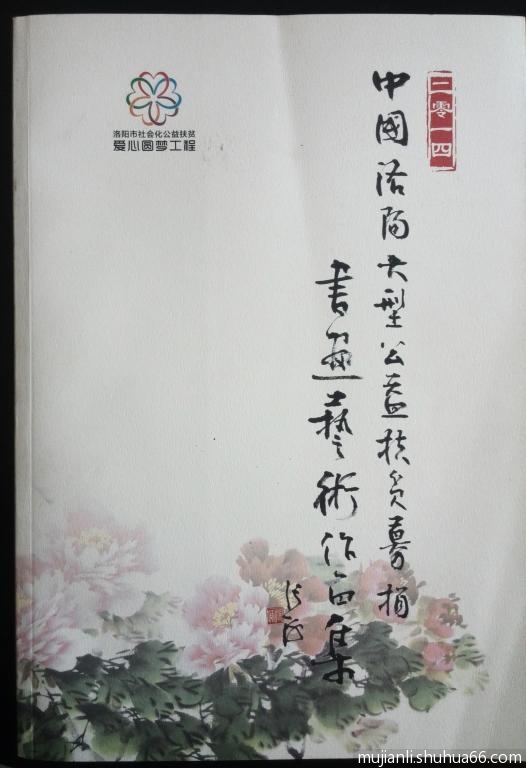 二零一四
中國洛陽大型公益扶贫募捐
書画藝術作品集
洛阳市社会化公益扶贫
爱心圆梦工程
mujianli.shuhua66.com